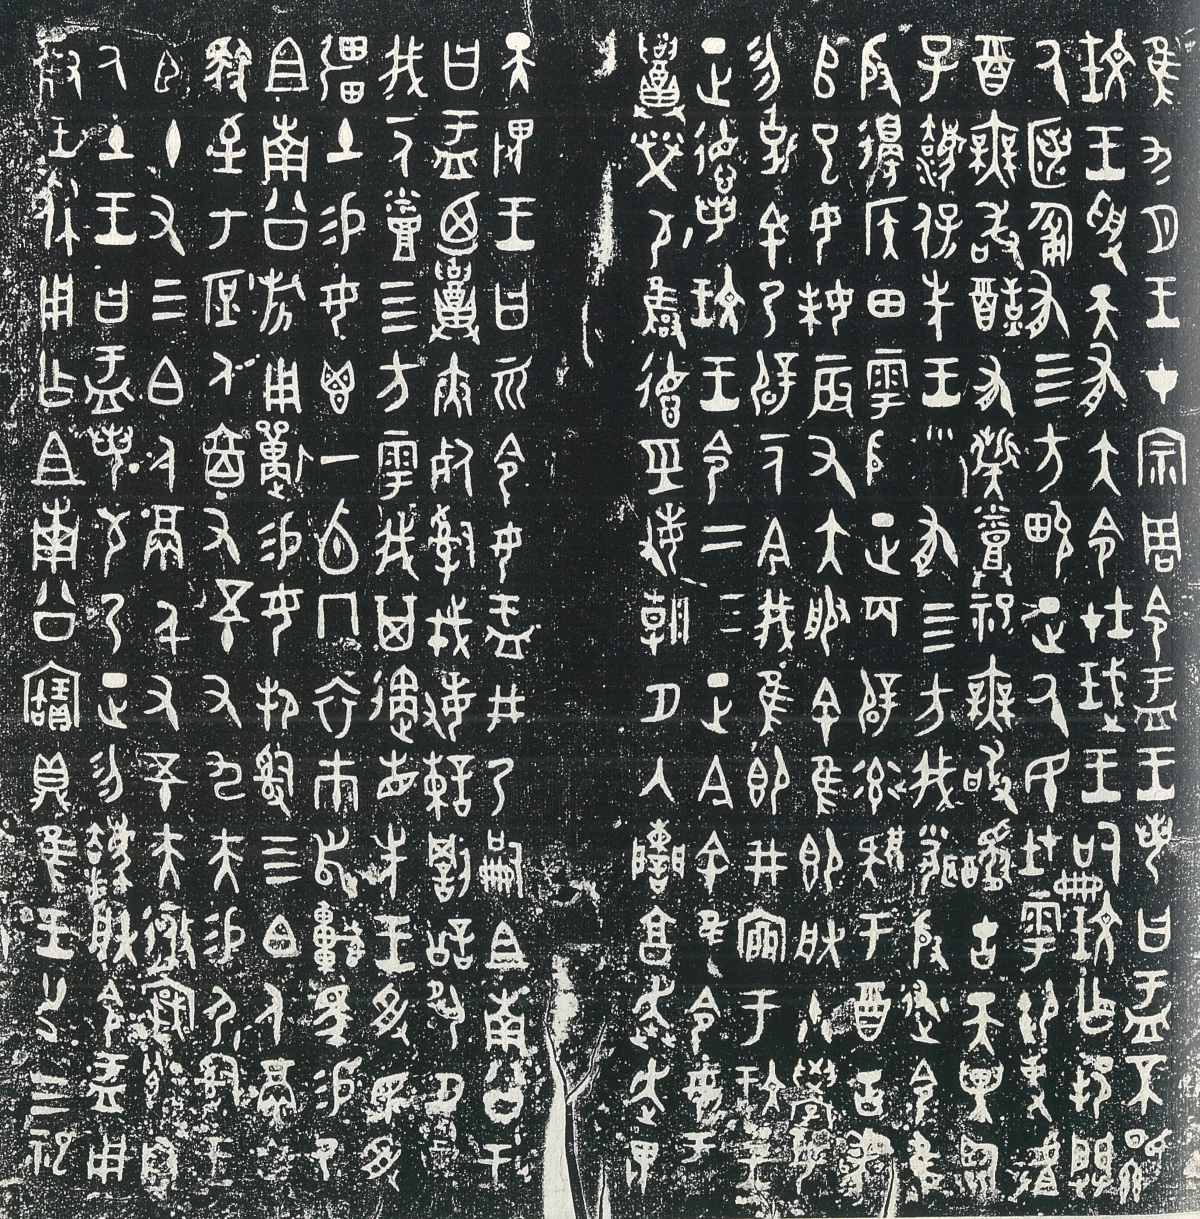 隹九月王才宗周令盂王若曰盂不顯
玟王受天有大令在珷王嗣玟乍邦闢
厥匿匍有四方畯正厥民在雩御事𠭯
酉無敢酖有髭蒸祀無敢醻古天異臨
子灋保先王□有四方我聞殷述令隹
殷邊侯田雩殷正百辟率肄于酉古喪
𠂤巳女妹辰又大服余隹即朕小學女
勿剋余乃辟一人今我隹即井㐭于玟王
正德若玟王令二三正今余隹令女盂
召榮敬雍德巠敏朝夕入諫享奔走畏
天畏王曰而令女盂井乃嗣且南公王
曰盂廼召夾死司戎敏諫罰訟夙夕召
我一人烝四方雩我其遹省先王受民受
疆土易女鬯一卣冂衣巿舄車馬易乃
且南公旂用狩易女邦司四白人鬲自
馭至于庶人六百又五十又九夫易尸司王
臣十又三白人鬲千又五十夫遷自
厥土王曰盂若敬乃正勿灋朕令盂用
對王休用乍且南公寶鼎隹王廿又三祀